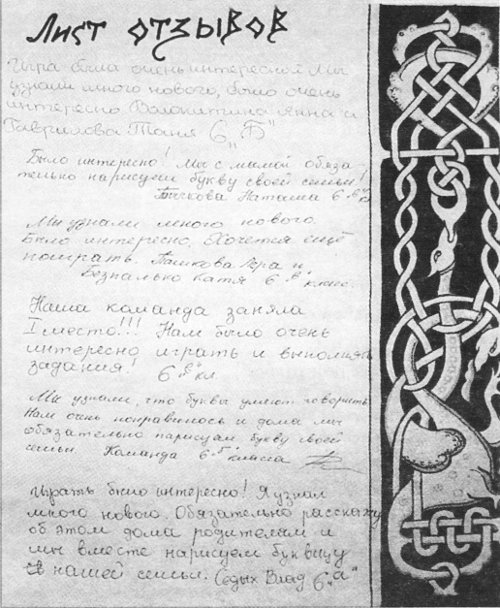 Лист отзывов
Игра была очень интересной Мы
узнали много нового, было очень
интересно Волокитина Анна и
Гаврилова Таня 6 „Б"
Было интересно! Мы с мамой обяза-
тельно нарисуем букву своей семьи!
Бычкова Наташа 6 кл
Мы узнали много нового.
Было интересно. Хочется ещё
поиграть. Пашкова Лера и
Безпалько Катя 6 „в" класс.
Наша команда заняла
I место!!! Нам было очень
интересно играть и выполнять
задания! 6 кл
Мы узнали, что буквы умеют говорить
Нам очень понравилось и дома мы
обязательно нарисуем букву своей
семьи Команда 6 класса
Играть было интересно! Я узнал
много нового. Обязательно расскажу
об этом дома родителям и
мы вместе нарисуем буквицу
нашей семьи. Седых Влад 6 „а"